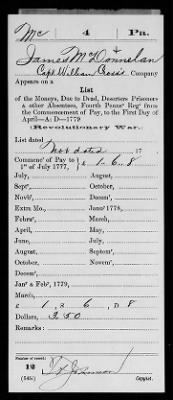 Mc 4 Pa.
James McDonnelan
Capt. William Cross's, Company
Appears on a
List
of the Moneys, Due to Dead, Deserters Prisoners
& other Absentees, Fourth Penns' Reg' from
the Commencement of Pay, to the First Day of
April—A. D—1779
(Revolutionary War.)
List dated
Not dated 17
Commenc' of Pay to
1st of July 1777, £ 1 . 6 . 8
July, August,
Sept', October,
Nov', Decem',
Extra Mo., Jan' 1778,
Febru', March,
April, May,
June, July,
August, Septem',
October, Novem',
Decem',
Jan' & Feb' 1779,
March,
£ 1, s 6, D 8
Dollars, 3.50
Remarks:
Number of record:
12
(545) Copyist.